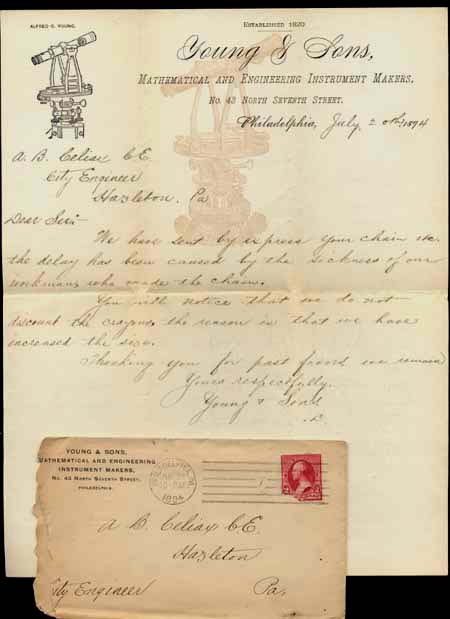 ALFRED C. YOUNG.
ESTABLISHED 1820
Young & Sons,
MATHEMATICAL AND ENGINEERING INSTRUMENT MAKERS,
No. 43 NORTH SEVENTH STREET.
Philadelphia, July 20th 1894
A. B. Celiax C.E.
City Engineer
Hazleton. Pa
Dear Sir:-
We have sent by express your chain etc.
the delay has been caused by the sickness of our
workman who made the chain.
You will notice that we do not
discount the crayons, the reason is that we have
increased the size.
Thanking you for past favors we remain
Yours respectfully.
Young & Sons
YOUNG & SONS,
MATHEMATICAL AND ENGINEERING
INSTRUMENT MAKERS,
No. 43 NORTH SEVENTH STREET,
PHILADELPHIA.
1894
A B. Celiax C.E.
Hazleton
City Engineer
Pa.